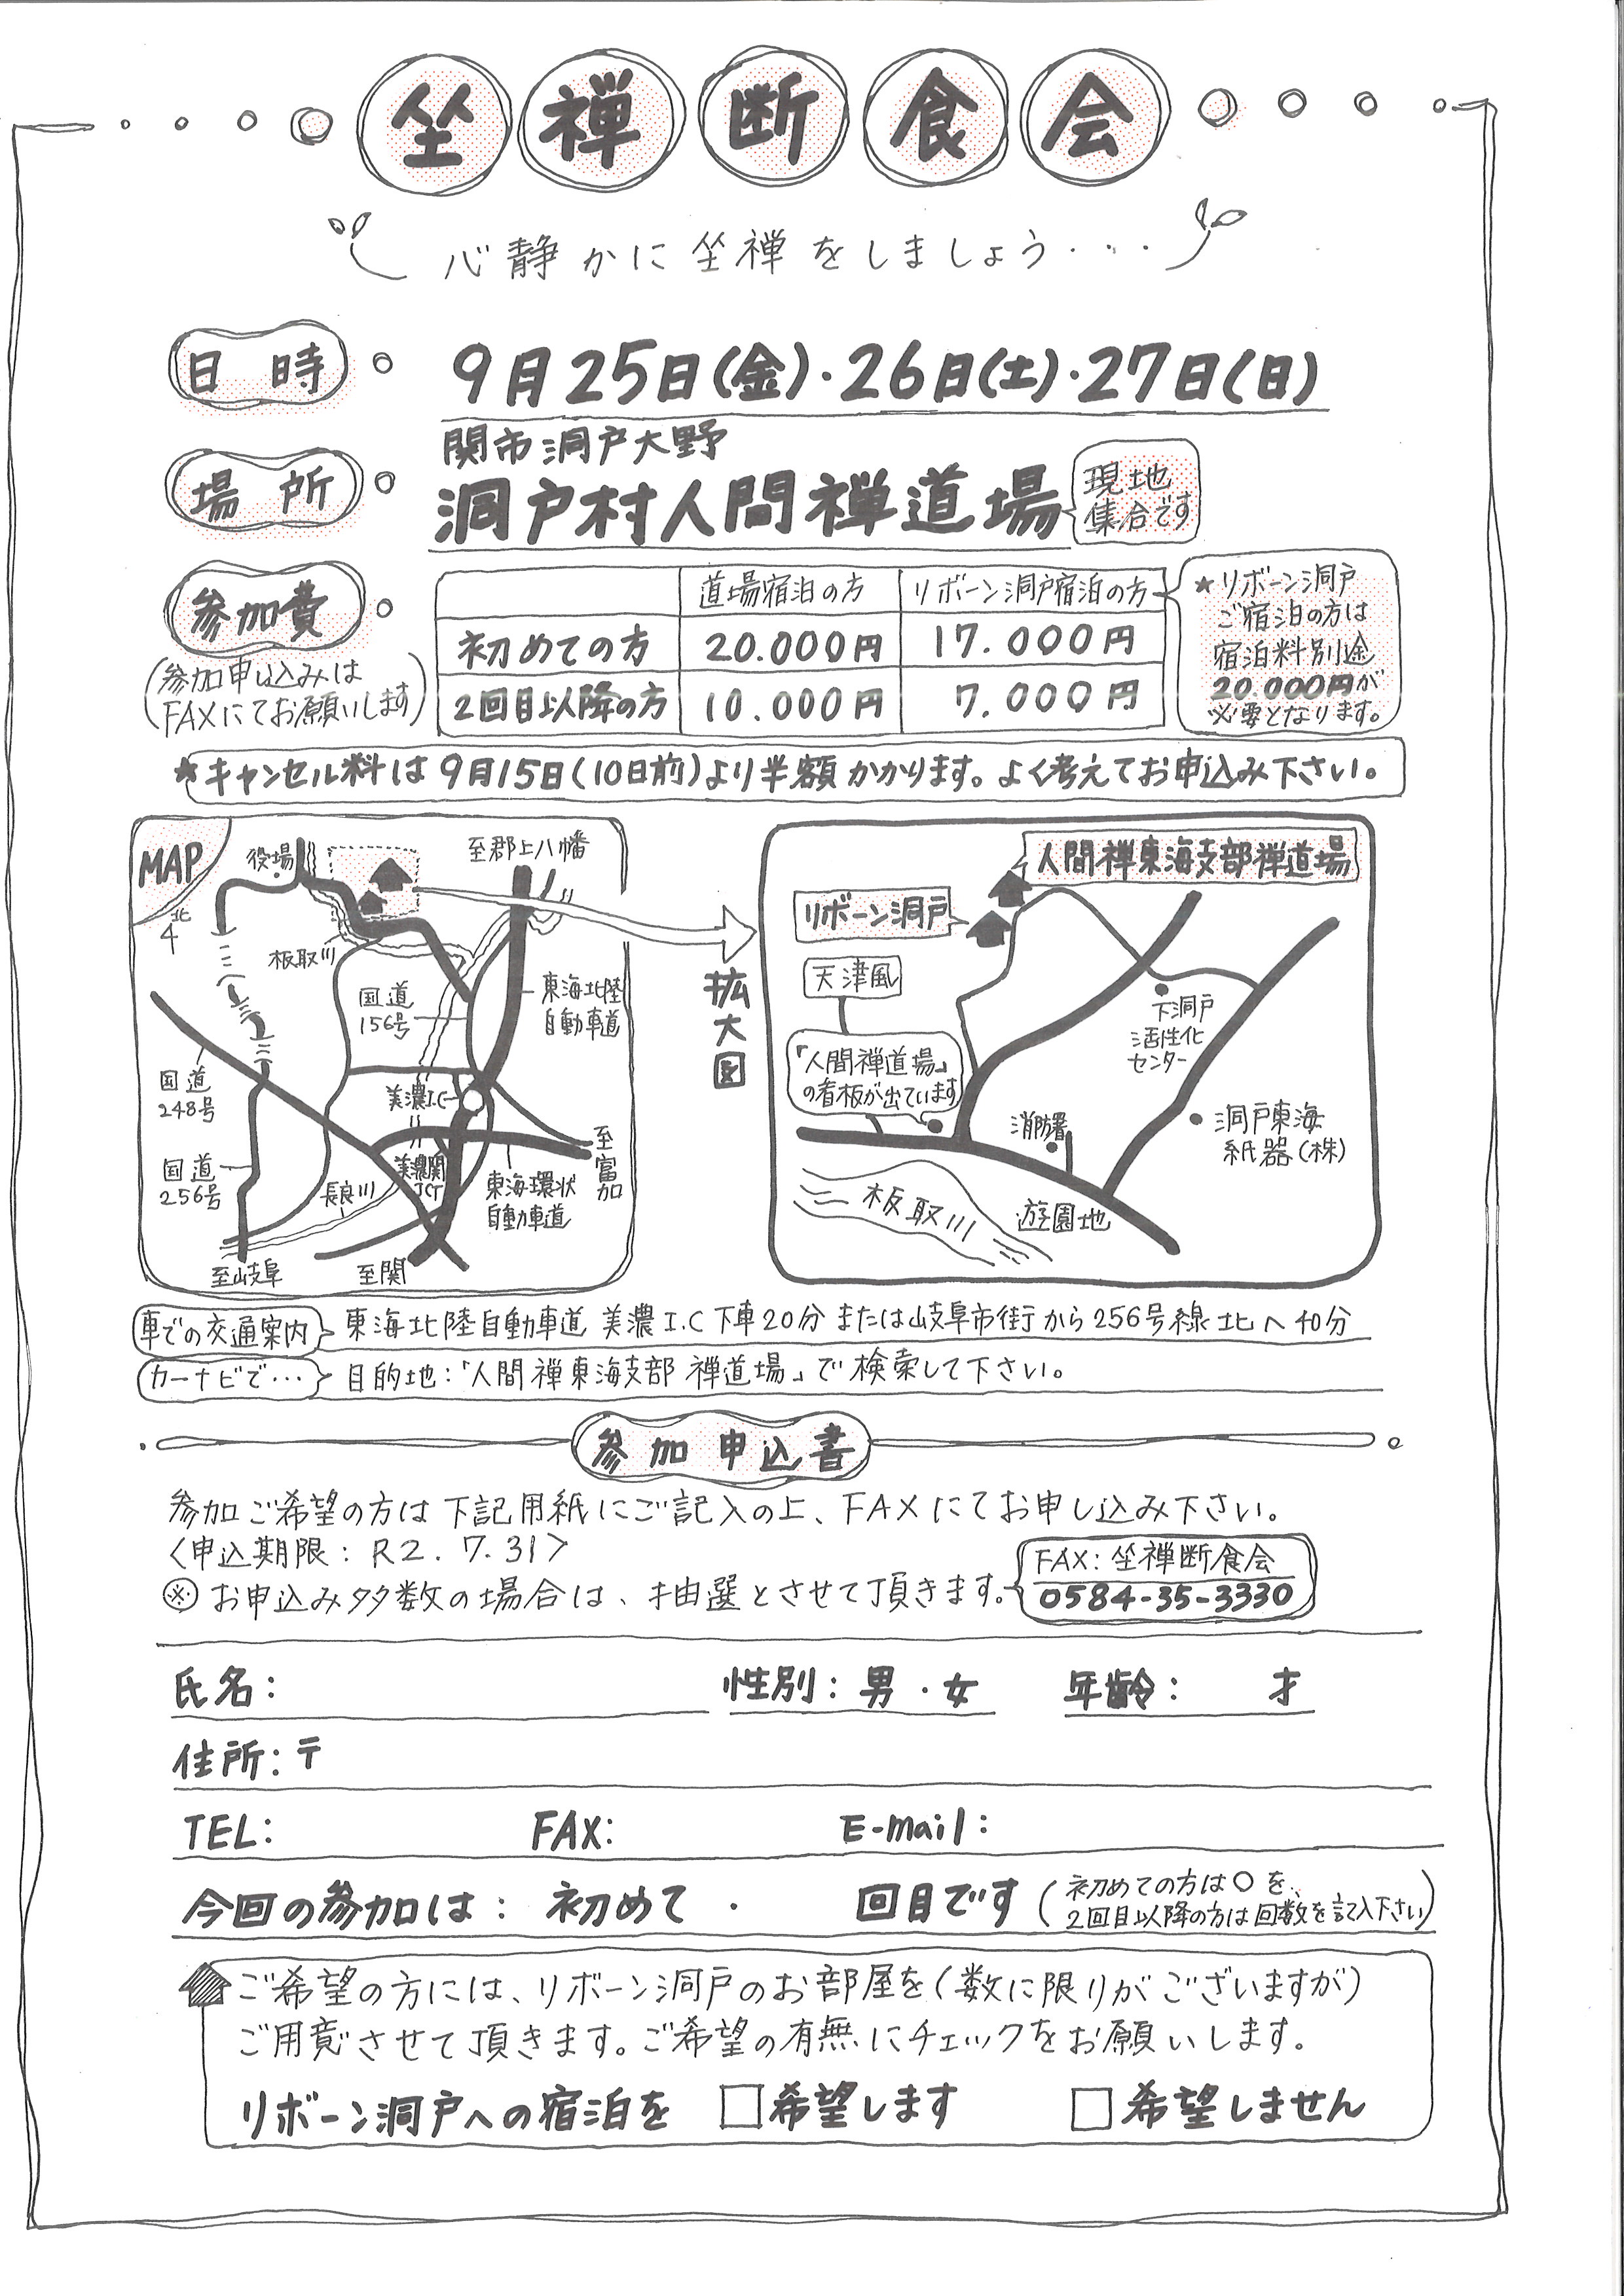 坐禅断食会
心静かに坐禅をしましょう・・・
日時
9月25日(金)・26日(土)・27日(日)
場所
関市洞戸大野
洞戸村人間禅道場
現地
集合です
参加費
(参加申し込みは
FAXにてお願いします)
道場宿泊の方 リボーン洞戸宿泊の方
初めての方 20.000円 17.000円
2回目以降の方 10.000円 7.000円
★リボーン洞戸
ご宿泊の方は
宿泊料別途
20.000円が
必要となります。
★キャンセル料は9月15日(10日前)より半額かかります。よく考えてお申込み下さい。
MAP
北
役場
至郡上八幡
板取川
国道
156号
東海北陸
自動車道
国道
248号
美濃I.C
国道
256号
長良川
美濃関
JCT
東海環状
自動車道
至富加
至岐阜
至関
拡大図
人間禅東海支部禅道場
リボーン洞戸
天津風
「人間禅道場」
の看板が出ています
下洞戸
活性化
センター
消防署
洞戸東海
紙器(株)
板取川
遊園地
車での交通案内 東海北陸自動車道 美濃I.C下車20分 または岐阜市街から256号線北へ40分
カーナビで… 目的地:「人間禅東海支部 禅道場」で検索して下さい。
参加申込書
参加ご希望の方は下記用紙にご記入の上、FAXにてお申し込み下さい。
〈申込期限: R2.7.31〉
※お申込み多数の場合は、抽選とさせて頂きます。
FAX: 坐禅断食会
0584-35-3330
氏名: 性別: 男・女 年齢: 才
住所: 〒
TEL: FAX: E-mail:
今回の参加は: 初めて・ 回目です(初めての方は○を、
2回目以降の方は回数を記入下さい)
ご希望の方には、リボーン洞戸のお部屋を(数に限りがございますが)
ご用意させて頂きます。ご希望の有無にチェックをお願いします。
リボーン洞戸への宿泊を □希望します □希望しません